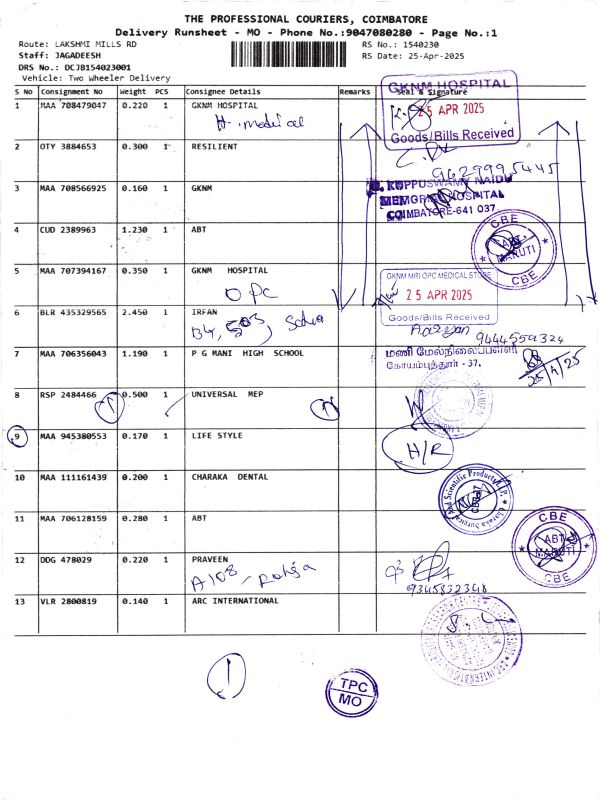 THE PROFESSIONAL COURIERS, COIMBATORE
Delivery Runsheet - MO - Phone No.:9047080280 - Page No.:1
Route: LAKSHMI MILLS RD
Staff: JAGADEESH
DRS No.: DCJB154023001
Vehicle: Two Wheeler Delivery
RS No.: 1540230
RS Date: 25-Apr-2025
S No Consignment No Weight PCS Consignee Details Remarks Seal & Signature
1 MAA 708479047 0.220 1 GKNM HOSPITAL
H. medical
GKNM HOSPITAL
25 APR 2025
Goods/Bills Received
2 OTY 3884653 0.300 1 RESILIENT
9629995445
3 MAA 708566925 0.160 1 GKNM
G. KUPPUSWAMY NAIDU
MEMORIAL HOSPITAL
COIMBATORE-641 037.
4 CUD 2389963 1.230 1 ABT
CBE
ABT
MARUTI
CBE
5 MAA 707394167 0.350 1 GKNM HOSPITAL
OPC
GKNM MRI OPC MEDICAL STORE
25 APR 2025
Goods/Bills Received
6 BLR 435329565 2.450 1 IRFAN
B4, 503,
9444559324
7 MAA 706356043 1.190 1 P G MANI HIGH SCHOOL
மணி மேல்நிலைப்பள்ளி
கோயம்புத்தூர் - 37.
25/4/25
8 RSP 2484466 0.500 1 UNIVERSAL MEP
9 MAA 945380553 0.170 1 LIFE STYLE
H/R
10 MAA 111161439 0.200 1 CHARAKA DENTAL
11 MAA 706128159 0.280 1 ABT
CBE
ABT
MARUTI
CBE
12 DDG 478029 0.220 1 PRAVEEN
A108 -
9345832348
13 VLR 2800819 0.140 1 ARC INTERNATIONAL
1
TPC
MO